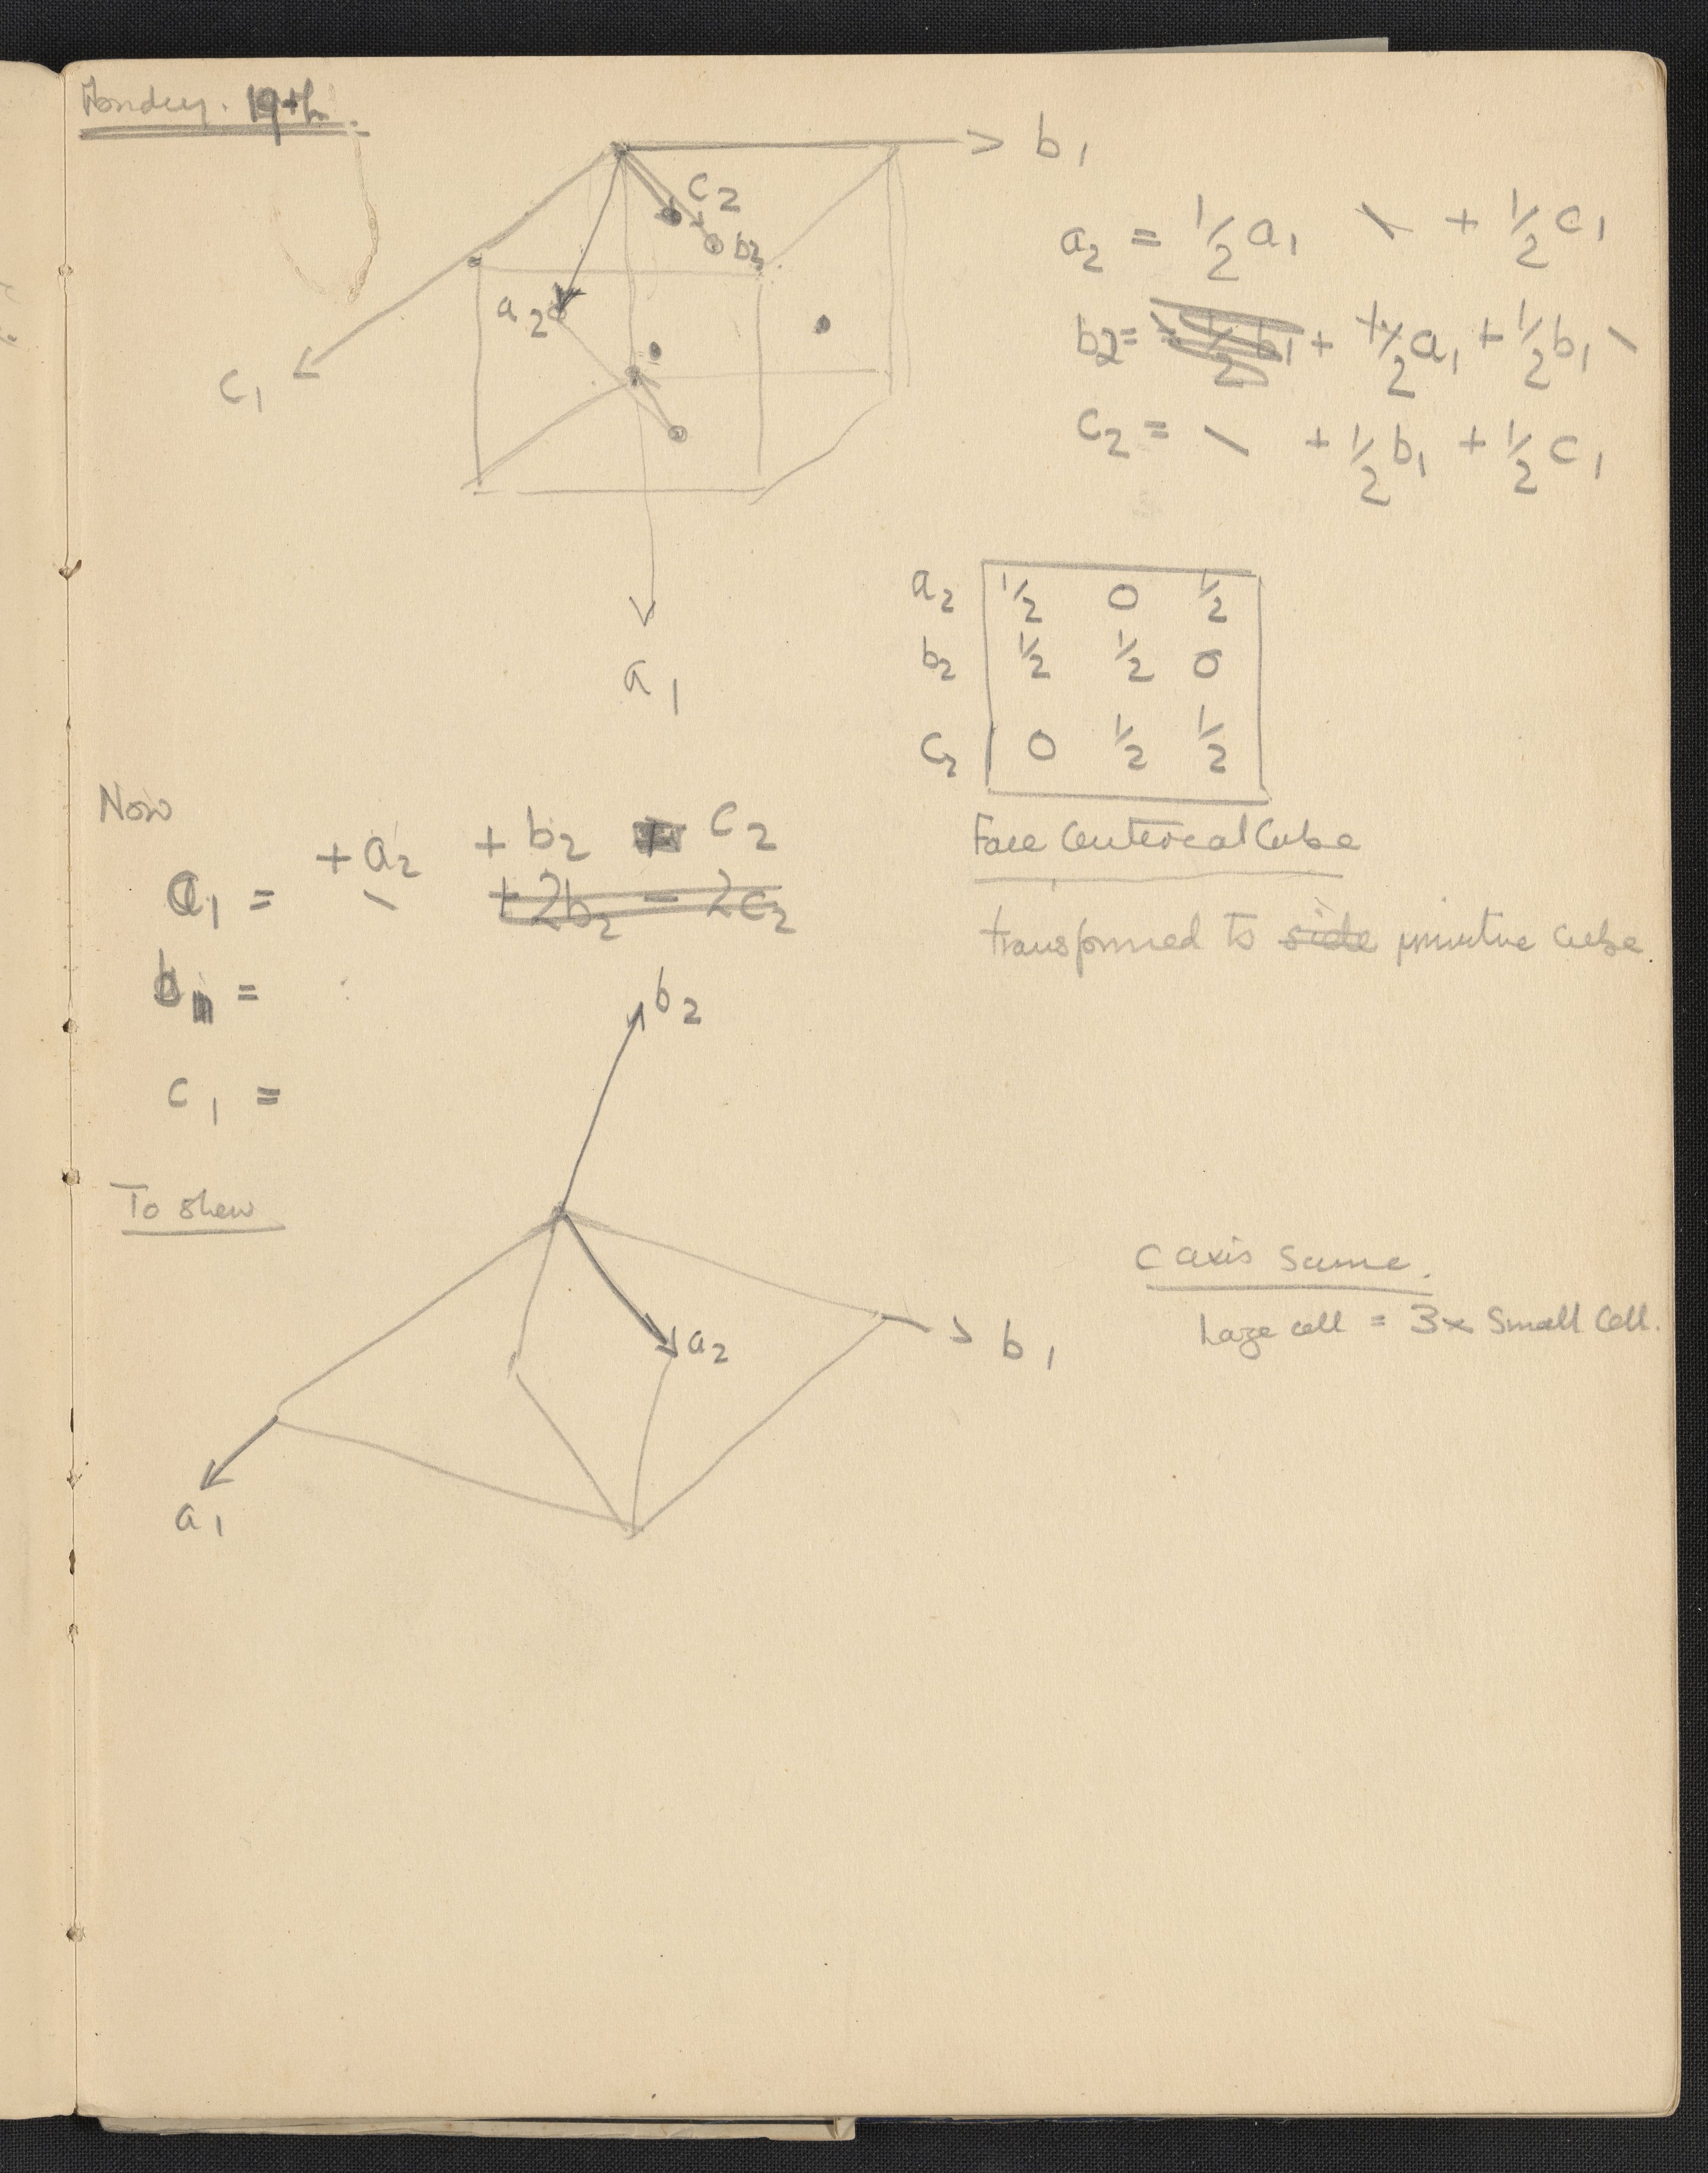 Monday. 19th.
b1
c2
b2
a2
c1
a1
a2 = 1/2 a1 \ + 1/2 c1
b2 = + 1/2 a1 + 1/2 b1 \
c2 = \ + 1/2 b1 + 1/2 c1
a2 1/2 0 1/2
b2 1/2 1/2 0
c2 0 1/2 1/2
Face Centered Cube
transformed to side primitive cube.
Now
+ a2 + b2 c2
a1 = - + 2b2 - 2c2
b1 =
c1 =
b2
To shew
a2
b1
a1
C axis same.
Large cell = 3x Small Cell.